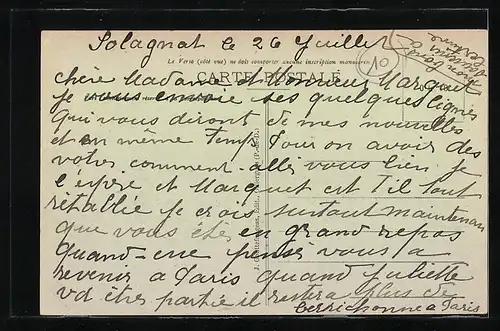 Solagnat le 26 Juillet
Le Verso (côté vue) ne doit comporter aucune inscription manuscrite
CARTE POSTALE
10
chère Madame et Monsieur Marquet
je vous envoie ses quelques lignes
qui vous diront de mes nouvelles
et en même temps pour en avoir des
votres comment allez vous bien je
l'éspére et Marquet est t'il tout
rétablie je crois surtout maintenan
que vous été en grand repos
quand-ene pensez vous a
revenir a Paris quand juliette
vd étre partie il restera plus de
berrichonne a Paris